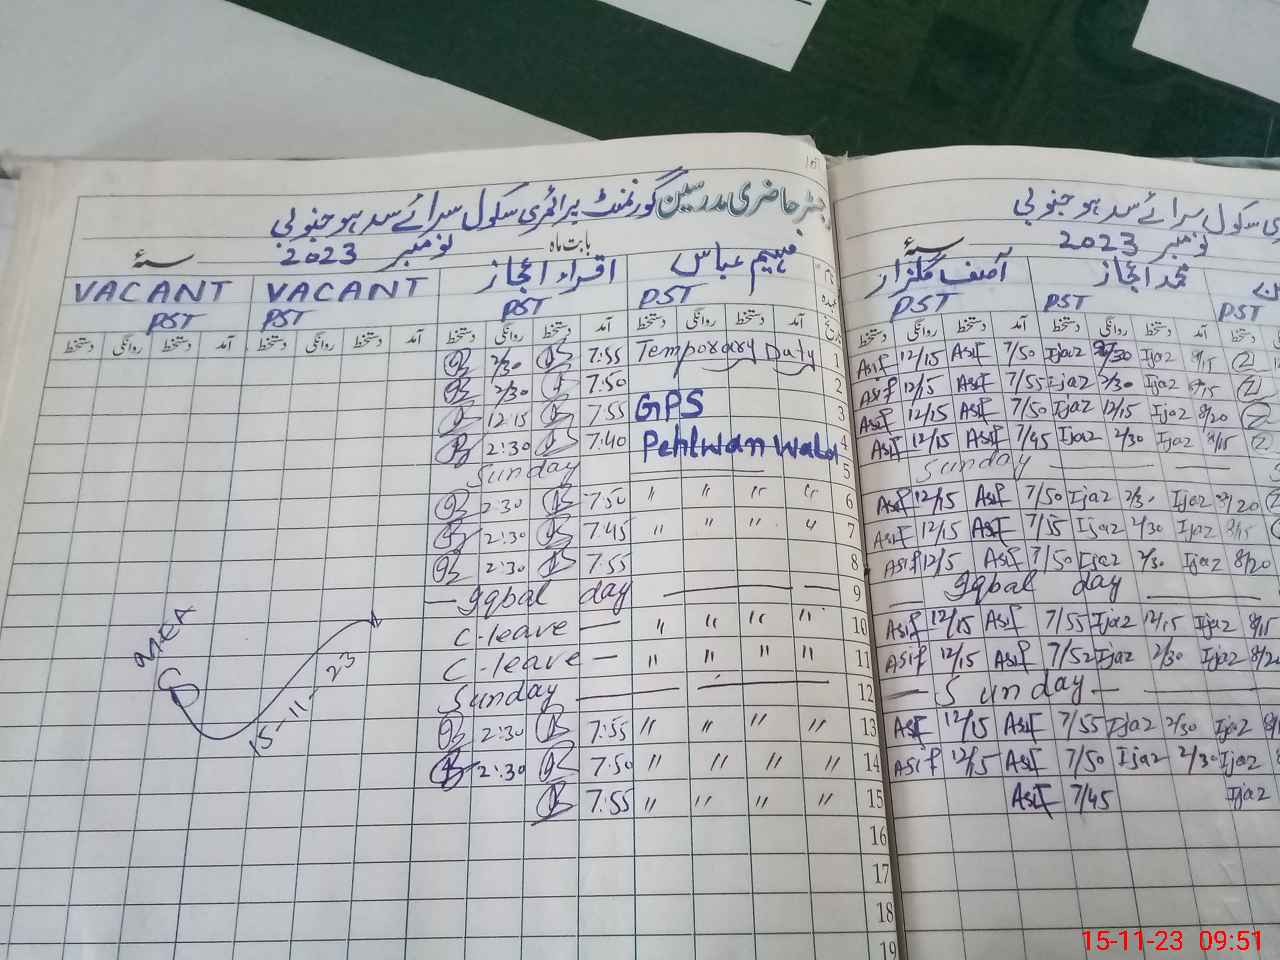 رجسٹر حاضری مدرسین گورنمنٹ پرائمری سکول سرائے سدھو جنوبی
بابت ماہ نومبر 2023 سنۂ
میثم عباس اقراء اعجاز VACANT VACANT
PST PST PST PST
آمد دستخط روانگی دستخط آمد دستخط روانگی دستخط آمد دستخط روانگی دستخط آمد دستخط روانگی دستخط
2/30 7:55 Temporary Duty 1
2/30 7:50 2
12:15 7:55 GPS 3
2:30 7:40 Pehlwan Wala 4
Sunday 5
2:30 7:50 " " " " 6
2:30 7:45 " " " " 7
2:30 7:55 8
Iqbal day 9
C-leave " " " " 10
C-leave " " " " 11
Sunday 12
2:30 7:55 " " " " 13
2:30 7:50 " " " " 14
7:55 " " " " 15
16
17
18
19
MEA
15-11-23
سکول سرائے سدھو جنوبی
نومبر 2023 سنۂ
محمد اعجاز آصف گلزار
PST PST PST
دستخط روانگی دستخط آمد دستخط روانگی دستخط آمد
Asif 12/15 Asif 7/50 Ijaz 2/30 Ijaz 8/15
Asif 12/15 Asif 7/55 Ijaz 2/30 Ijaz 8/15
Asif 12/15 Asif 7/50 Ijaz 12/15 Ijaz 8/20
Asif 12/15 Asif 7/45 Ijaz 2/30 Ijaz 8/15
Sunday
Asif 12/15 Asif 7/50 Ijaz 2/30 Ijaz 8/20
Asif 12/15 Asif 7/55 Ijaz 2/30 Ijaz 8/15
Asif 12/15 Asif 7/50 Ijaz 2/30 Ijaz 8/20
Iqbal day
Asif 12/15 Asif 7/55 Ijaz 12/15 Ijaz 8/15
Asif 12/15 Asif 7/52 Ijaz 2/30 Ijaz 8/20
Sunday
Asif 12/15 Asif 7/55 Ijaz 2/30 Ijaz
Asif 12/15 Asif 7/50 Ijaz 2/30 Ijaz
Asif 7/45 Ijaz
15-11-23 09:51